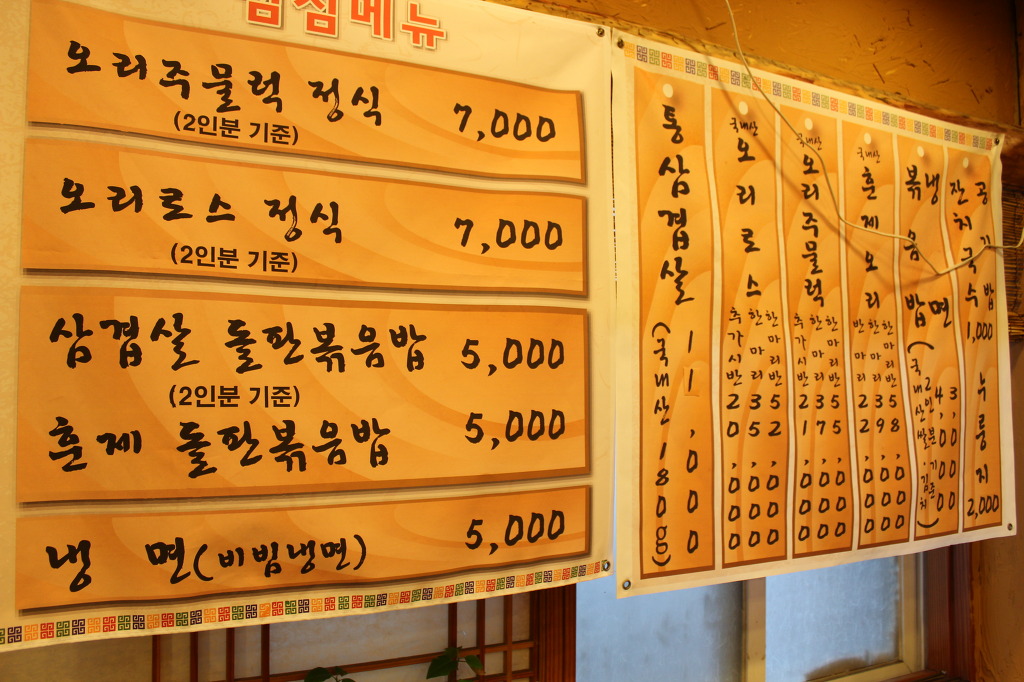 점심메뉴
오리주물럭 정식 7,000
(2인분 기준)
오리로스 정식 7,000
(2인분 기준)
삼겹살 돌판볶음밥 5,000
(2인분 기준)
훈제 돌판볶음밥 5,000
냉면(비빔냉면) 5,000
통삼겹살 11,000
(국내산180g)
국내산 오리로스
한마리반 52,000
한마리 35,000
추가시반 20,000
국내산 오리주물럭
한마리반 55,000
한마리 37,000
추가시반 21,000
국내산 훈제오리
한마리반 58,000
한마리 39,000
반마리 22,000
냉면
볶음밥
(2인분기준
국내산쌀.김치)
4,000
3,000
공기밥 1,000
잔치국수
누룽지 2,000